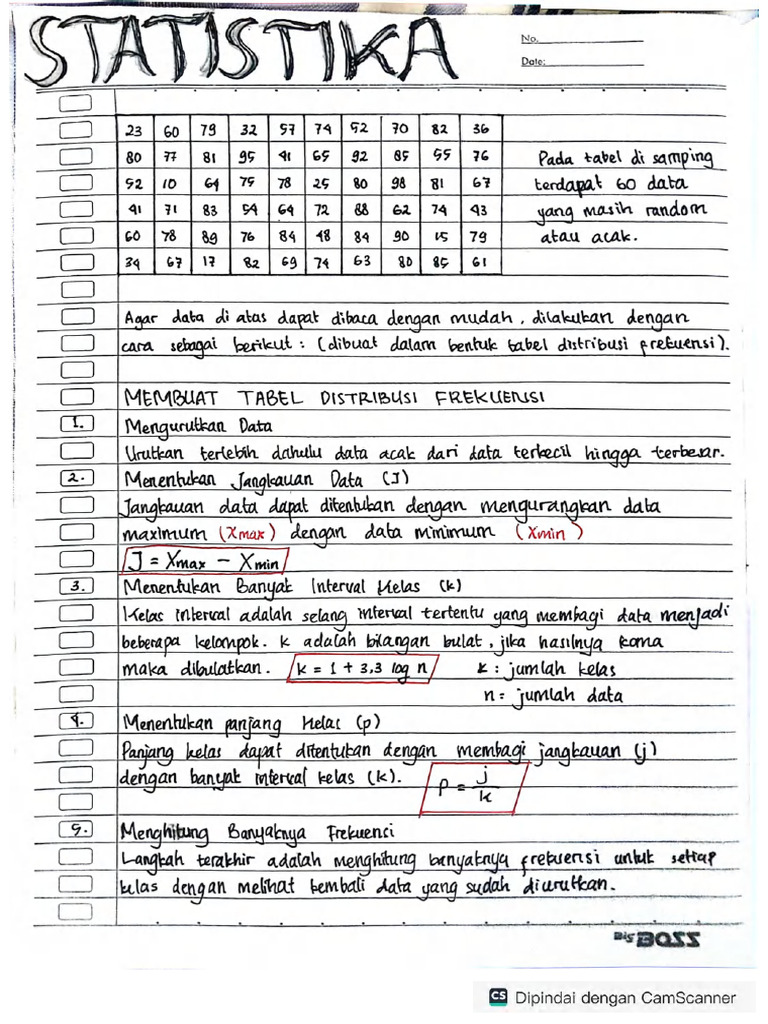 STATISTIKA
No.
Date:
23 60 79 32 57 74 52 70 82 36
80 77 81 95 41 65 92 85 55 76
52 10 64 75 78 25 80 98 81 67
41 71 83 54 64 72 88 62 74 43
60 78 89 76 84 48 84 90 15 79
34 67 17 82 69 74 63 80 85 61
Pada tabel di samping
terdapat 60 data
yang masih random
atau acak.
Agar data di atas dapat dibaca dengan mudah, dilakukan dengan
cara sebagai berikut : (dibuat dalam bentuk tabel distribusi frekuensi).
MEMBUAT TABEL DISTRIBUSI FREKUENSI
1. Mengurutkan Data
Urutkan terlebih dahulu data acak dari data terkecil hingga terbesar.
2. Menentukan Jangkauan Data (J)
Jangkauan data dapat ditentukan dengan mengurangkan data
maximum (Xmax) dengan data minimum (Xmin)
J = Xmax - Xmin
3. Menentukan Banyak Interval Kelas (k)
Kelas interval adalah selang interval tertentu yang membagi data menjadi
beberapa kelompok. k adalah bilangan bulat, jika hasilnya koma
maka dibulatkan. k = 1 + 3,3 log n k : jumlah kelas
n = jumlah data
4. Menentukan panjang Kelas (p)
Panjang kelas dapat ditentukan dengan membagi jangkauan (j)
dengan banyak interval kelas (k). p = j / k
5. Menghitung Banyaknya Frekuenci
Langkah terakhir adalah menghitung banyaknya frekuensi untuk setiap
kelas dengan melihat kembali data yang sudah diurutkan.
BIG BOSS
CS Dipindai dengan CamScanner